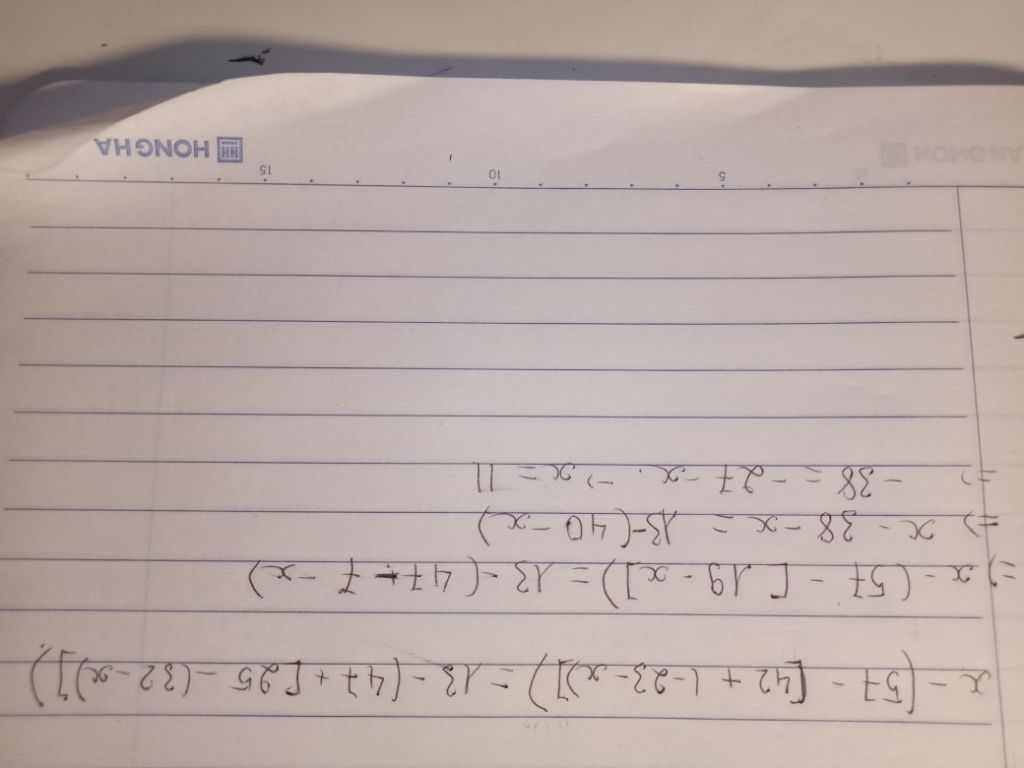 x - (57 - [42 + (-23 - x)]) = 13 - (47 + [25 - (32 - x)])
=) x - (57 - [19 - x]) = 13 - (47 - 7 - x)
=) x - 38 - x = 13 - (40 - x)
=) - 38 = - 27 - x. -> x = 11
5 10 15
HONG HA